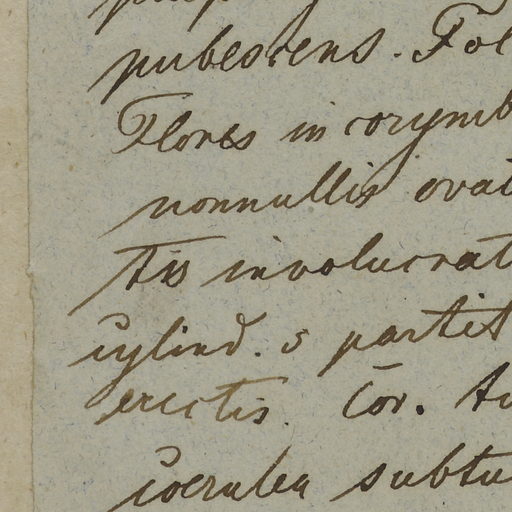 pubescens. Fol
Flores in corymb
nonnullis ovat
tis involucrat
cylind. 5 partit
erectis. Cor. tu
coerulea subtu